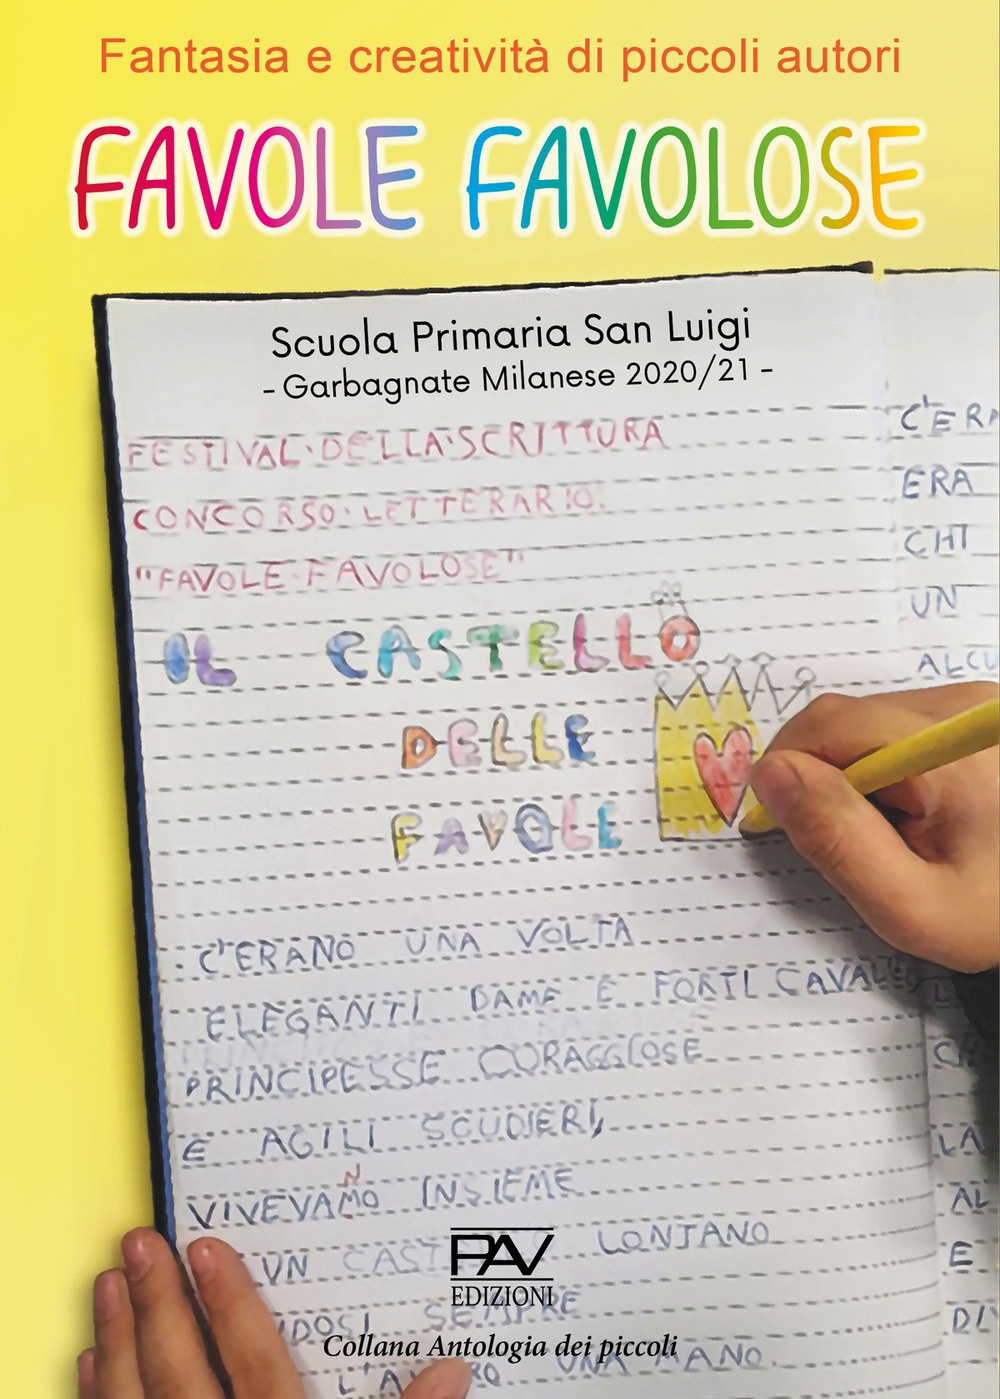 Fantasia e creatività di piccoli autori
FAVOLE FAVOLOSE
Scuola Primaria San Luigi
- Garbagnate Milanese 2020/21 -
FESTIVAL·DELLA·SCRITTURA
CONCORSO·LETTERARIO:
"FAVOLE·FAVOLOSE"
IL CASTELLO
DELLE
FAVOLE
C'ERANO UNA VOLTA
ELEGANTI DAME E FORTI
PRINCIPESSE CORAGGIOSE
E AGILI SCUDIERI,
VIVEVANO INSIEME
UN LONTANO
SEMPRE
UNA MANO.
ERA
CHI
UN
LA
AL
E
PAV
EDIZIONI
Collana Antologia dei piccoli